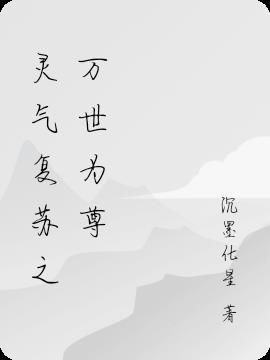 灵气复苏之
万世为尊
沉墨化星 著